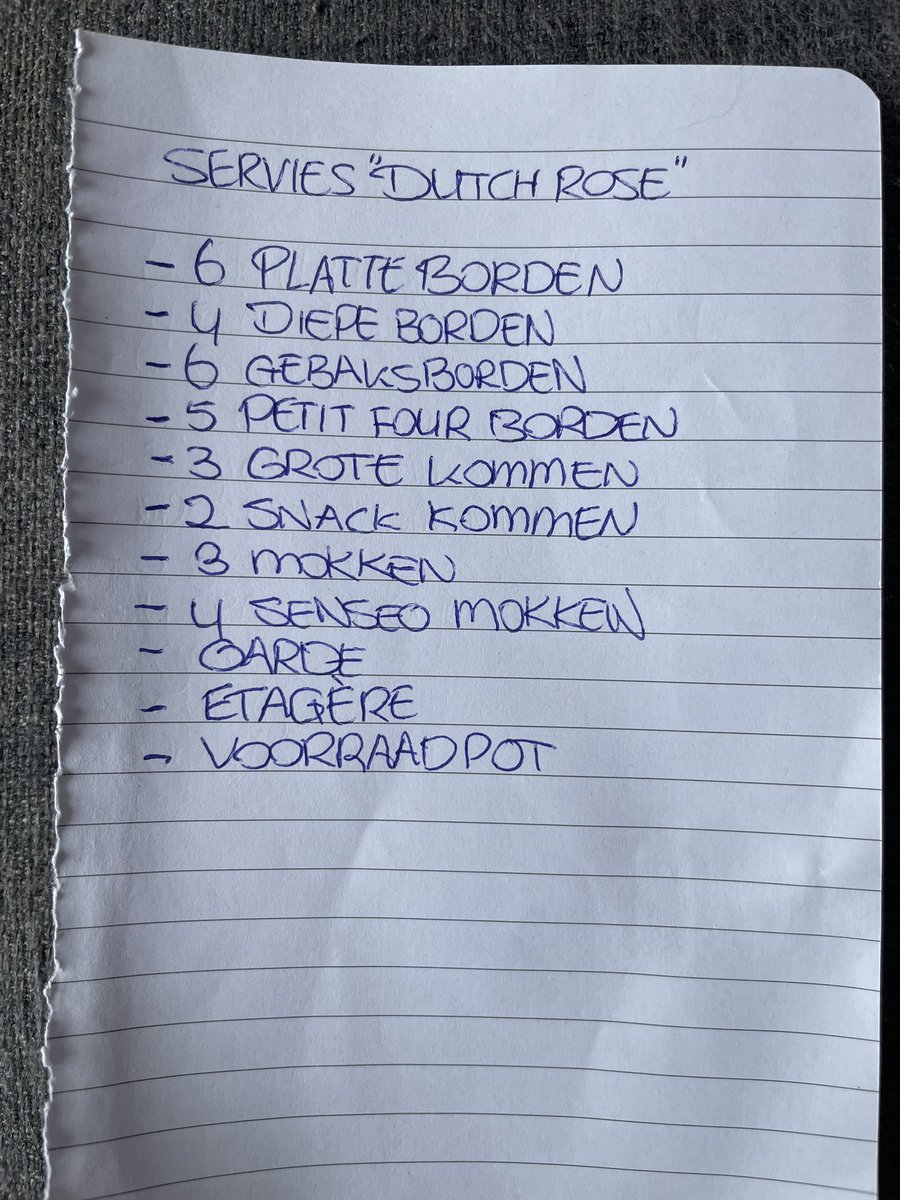 SERVIES "DUTCH ROSE"
- 6 PLATTE BORDEN
- 4 DIEPE BORDEN
- 6 GEBAKSBORDEN
- 5 PETIT FOUR BORDEN
- 3 GROTE KOMMEN
- 2 SNACK KOMMEN
- 3 MOKKEN
- 4 SENSEO MOKKEN
- GARDE
- ETAGÈRE
- VOORRAADPOT